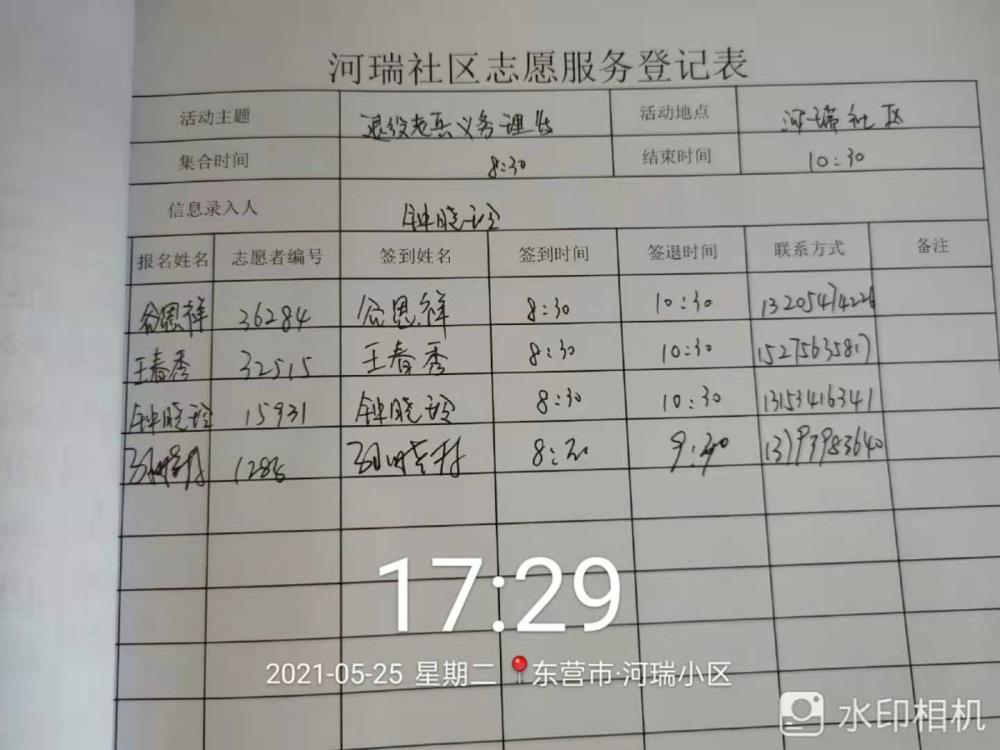 河瑞社区志愿服务登记表
活动主题 退役老兵义务理发 活动地点 河瑞社区
集合时间 8:30 结束时间 10:30
信息录入人 钟晓玲
报名姓名 志愿者编号 签到姓名 签到时间 签退时间 联系方式 备注
谷恩祥 36284 谷恩祥 8:30 10:30 13205474226
王春秀 32515 王春秀 8:30 10:30 15275635817
钟晓玲 15931 钟晓玲 8:30 10:30 13153416341
8:30 13793983640
17:29
2021-05-25 星期二 东营市·河瑞小区
水印相机